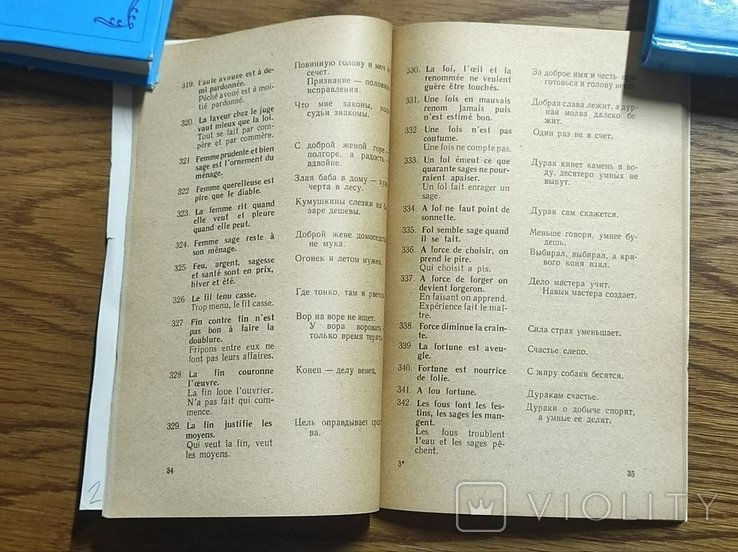 319. Faute avouée est à de-
mi pardonnée.
Péché avoué est à moi-
tié pardonné.
Повинную голову и меч не
сечет.
Признание — половина
исправления.
320. La faveur chez le juge
vaut mieux que la loi.
Tout se fait par com-
père et par commère.
Что мне законы, коли
судьи знакомы.
321. Femme prudente et bien
sage est l'ornement du
ménage.
С доброй женой горе —
полгоре, а радость —
вдвойне.
322 Femme querelleuse est
pire que le diable.
Злая баба в дому —
черта в лесу.
323. La femme rit quand
elle veut et pleure
quand elle peut.
Кумушкины слезки на
заре дешевы.
324. Femme sage reste à
son ménage.
Доброй жене домоседство
не мука.
325. Feu, argent, sagesse
et santé sont en prix,
hiver et été.
Огонек и летом нужен.
326. Le fil ténu casse.
Trop menu, le fil casse.
Где тонко, там и рвется.
327 Fin contre fin n'est
pas bon à faire la
doublure.
Fripons entre eux ne
font pas leurs affaires.
Вор на воре не ищет.
У вора воровать —
только время терять.
328 La fin couronne
l'œuvre.
La fin loue l'ouvrier.
N'a pas fait qui com-
mence.
Конец — делу венец.
329. La fin justifie les
moyens.
Qui veut la fin, veut
les moyens.
Цель оправдывает средст-
ва.
34
330. La loi, l'œil et la
renommée ne veulent
guère être touchés.
За доброе имя и честь при-
готовься и голову несть.
331. Une fois en mauvais
renom jamais puis
n'est estimé bon.
Добрая слава лежит, а дур-
ная молва далеко бе-
жит.
332 Une fois n'est pas
coutume.
Une fois ne compte pas.
Один раз не в счет.
333. Un fol émeut ce que
quarante sages ne pour-
raient apaiser.
Un fol fait enrager un
sage.
Дурак кинет камень в во-
ду, десятеро умных не
вынут.
334. A fol ne faut point de
sonnette.
Дурак сам скажется.
335. Fol semble sage quand
il se tait.
Меньше говори, умнее бу-
дешь.
336 A force de choisir, on
prend le pire.
Qui choisit a pis.
Выбирал, выбирал, а кри-
вого коня взял.
337 A force de forger on
devient forgeron.
En faisant on apprend.
Expérience fait le maî-
tre.
Дело мастера учит.
Навык мастера создает.
338 Force diminue la crain-
te.
Сила страх уменьшает.
339 La fortune est aveu-
gle.
Счастье слепо.
340. Fortune est nourrice
de folie.
С жиру собаки бесятся.
341. A fou fortune.
Дуракам счастье.
342. Les fous font les fes-
tins, les sages les man-
gent.
Les fous troublent
l'eau et les sages pê-
chent.
Дураки о добыче спорят,
а умные ее делят.
3*
35
2
VIOLITY